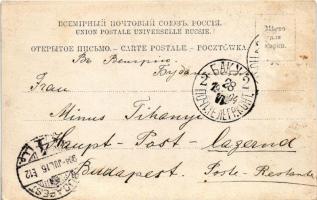 ВСЕМІРНЫЙ ПОЧТОВЫЙ СОЮЗЪ. РОССІЯ.
UNION POSTALE UNIVERSELLE RUSSIE.
ОТКРЫТОЕ ПИСЬМО. - CARTE POSTALE - POCZTÓWKA
Мѣсто
для
марки.
Въ Венгрію.
Куда
БАКУ
28
Frau
Minus Tihanyi
Haupt-Post-lagernd
Budapest. Poste-Restante
BUDAPEST
904 JUL 16